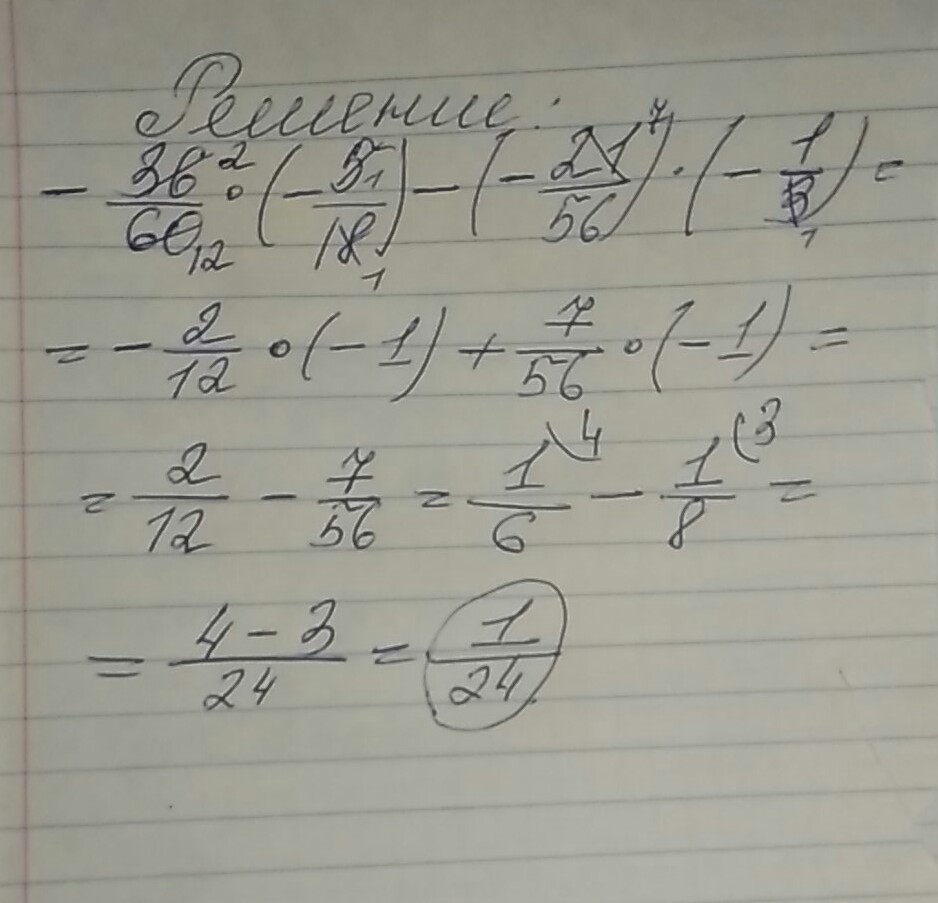 Решение:
- 36²/60₁₂ · (- 5₁/18₁) - (- 21⁷/56) · (- 1/3₁) =
= - 2/12 · (- 1) + 7/56 · (- 1) =
= 2/12 - 7/56 = 1\4/6 - 1(3/8 =
= 4 - 3/24 = 1/24